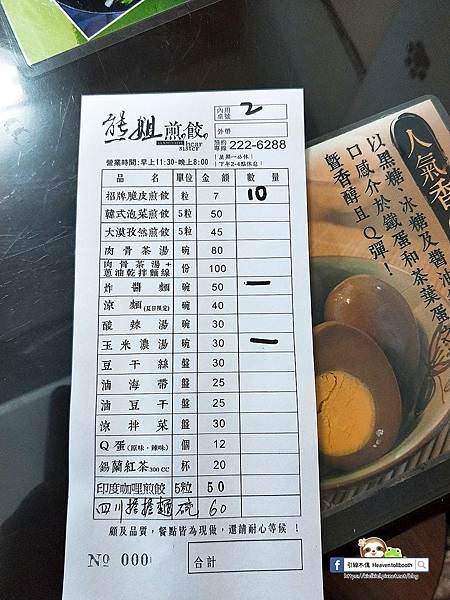 熊姐煎餃
bear sister
內用
桌號
2
外帶
預約
專線
222-6288
營業時間:早上11:30-晚上8:00
星期一必休
下午2-4點休息
品名 單位 金額 數量
招牌脆皮煎餃 粒 7 10
韓式泡菜煎餃 5粒 50
大漠孜然煎餃 5粒 45
肉骨茶湯 碗 80
肉骨茶湯+
蔥油乾拌麵線 份 100
炸醬麵 碗 50 一
涼麵(夏日限定) 碗 40
酸辣湯 碗 30
玉米濃湯 碗 30 一
豆干絲 盤 30
滷海帶 盤 25
滷豆干 盤 25
涼拌菜 盤 30
Q蛋(原味。辣味) 個 12
錫蘭紅茶300CC 杯 20
印度咖哩煎餃 5粒 50
四川擔擔麵 碗 60
顧及品質,餐點皆為現做,還請耐心等候!
No 000
合計
人氣香
以黑糖、冰糖及醬油
口感介於鐵蛋和茶葉蛋
醬香醇且Q彈!
引線不僅 Heaventollbooth